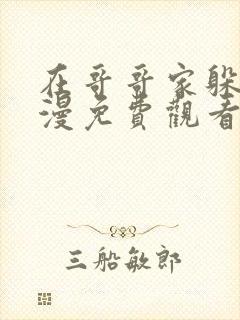 在哥哥家躲
漫免費觀看
三船敏郎